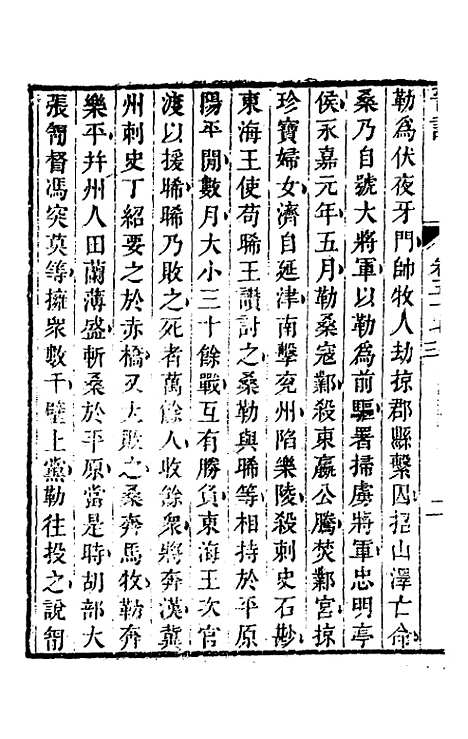 勒爲伏夜牙門帥牧人劫掠郡縣繫囚招山澤亡命
桑乃自號大將軍以勒爲前驅署掃虜將軍忠明亭
侯永嘉元年五月勒桑寇鄴殺東嬴公騰焚鄴宮掠
珍寶婦女濟自延津南擊兗州陷樂陵殺刺史石尠
東海王使苟晞王讚討之桑勒與晞等相持於平原
陽平閒數月大小三十餘戰互有勝負東海王次官
渡以援晞晞乃敗之死者萬餘人收餘衆將奔漢冀
州刺史丁紹要之於赤橋又大敗之桑奔馬牧勒奔
樂平幷州人田蘭薄盛斬桑於平原當是時胡部大
張㔨督馮突莫等擁衆數千壁上黨勒往投之說㔨